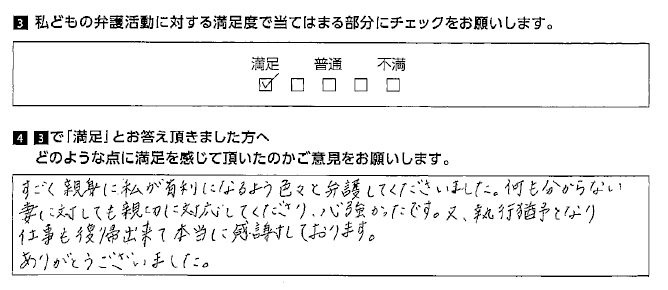 3 私どもの弁護活動に対する満足度で当てはまる部分にチェックをお願いします。
満足 普通 不満
4 3で「満足」とお答え頂きました方へ
どのような点に満足を感じて頂いたのかご意見をお願いします。
すごく親身に私が有利になるよう色々と弁護してくださいました。何も分からない
妻に対しても親切に対応してくださり、心強かったです。又、執行猶予となり
仕事も復帰出来て本当に感謝しております。
ありがとうございました。